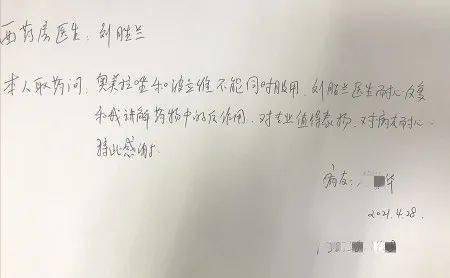 西药房医生：刘胜兰
本人取药问，奥美拉唑和波立维不能同时服用，刘胜兰医生耐心反复
和我讲解药物中的反作用，对专业值得表扬，对病友耐心。
特此感谢。
病友：华
2021.4.28.